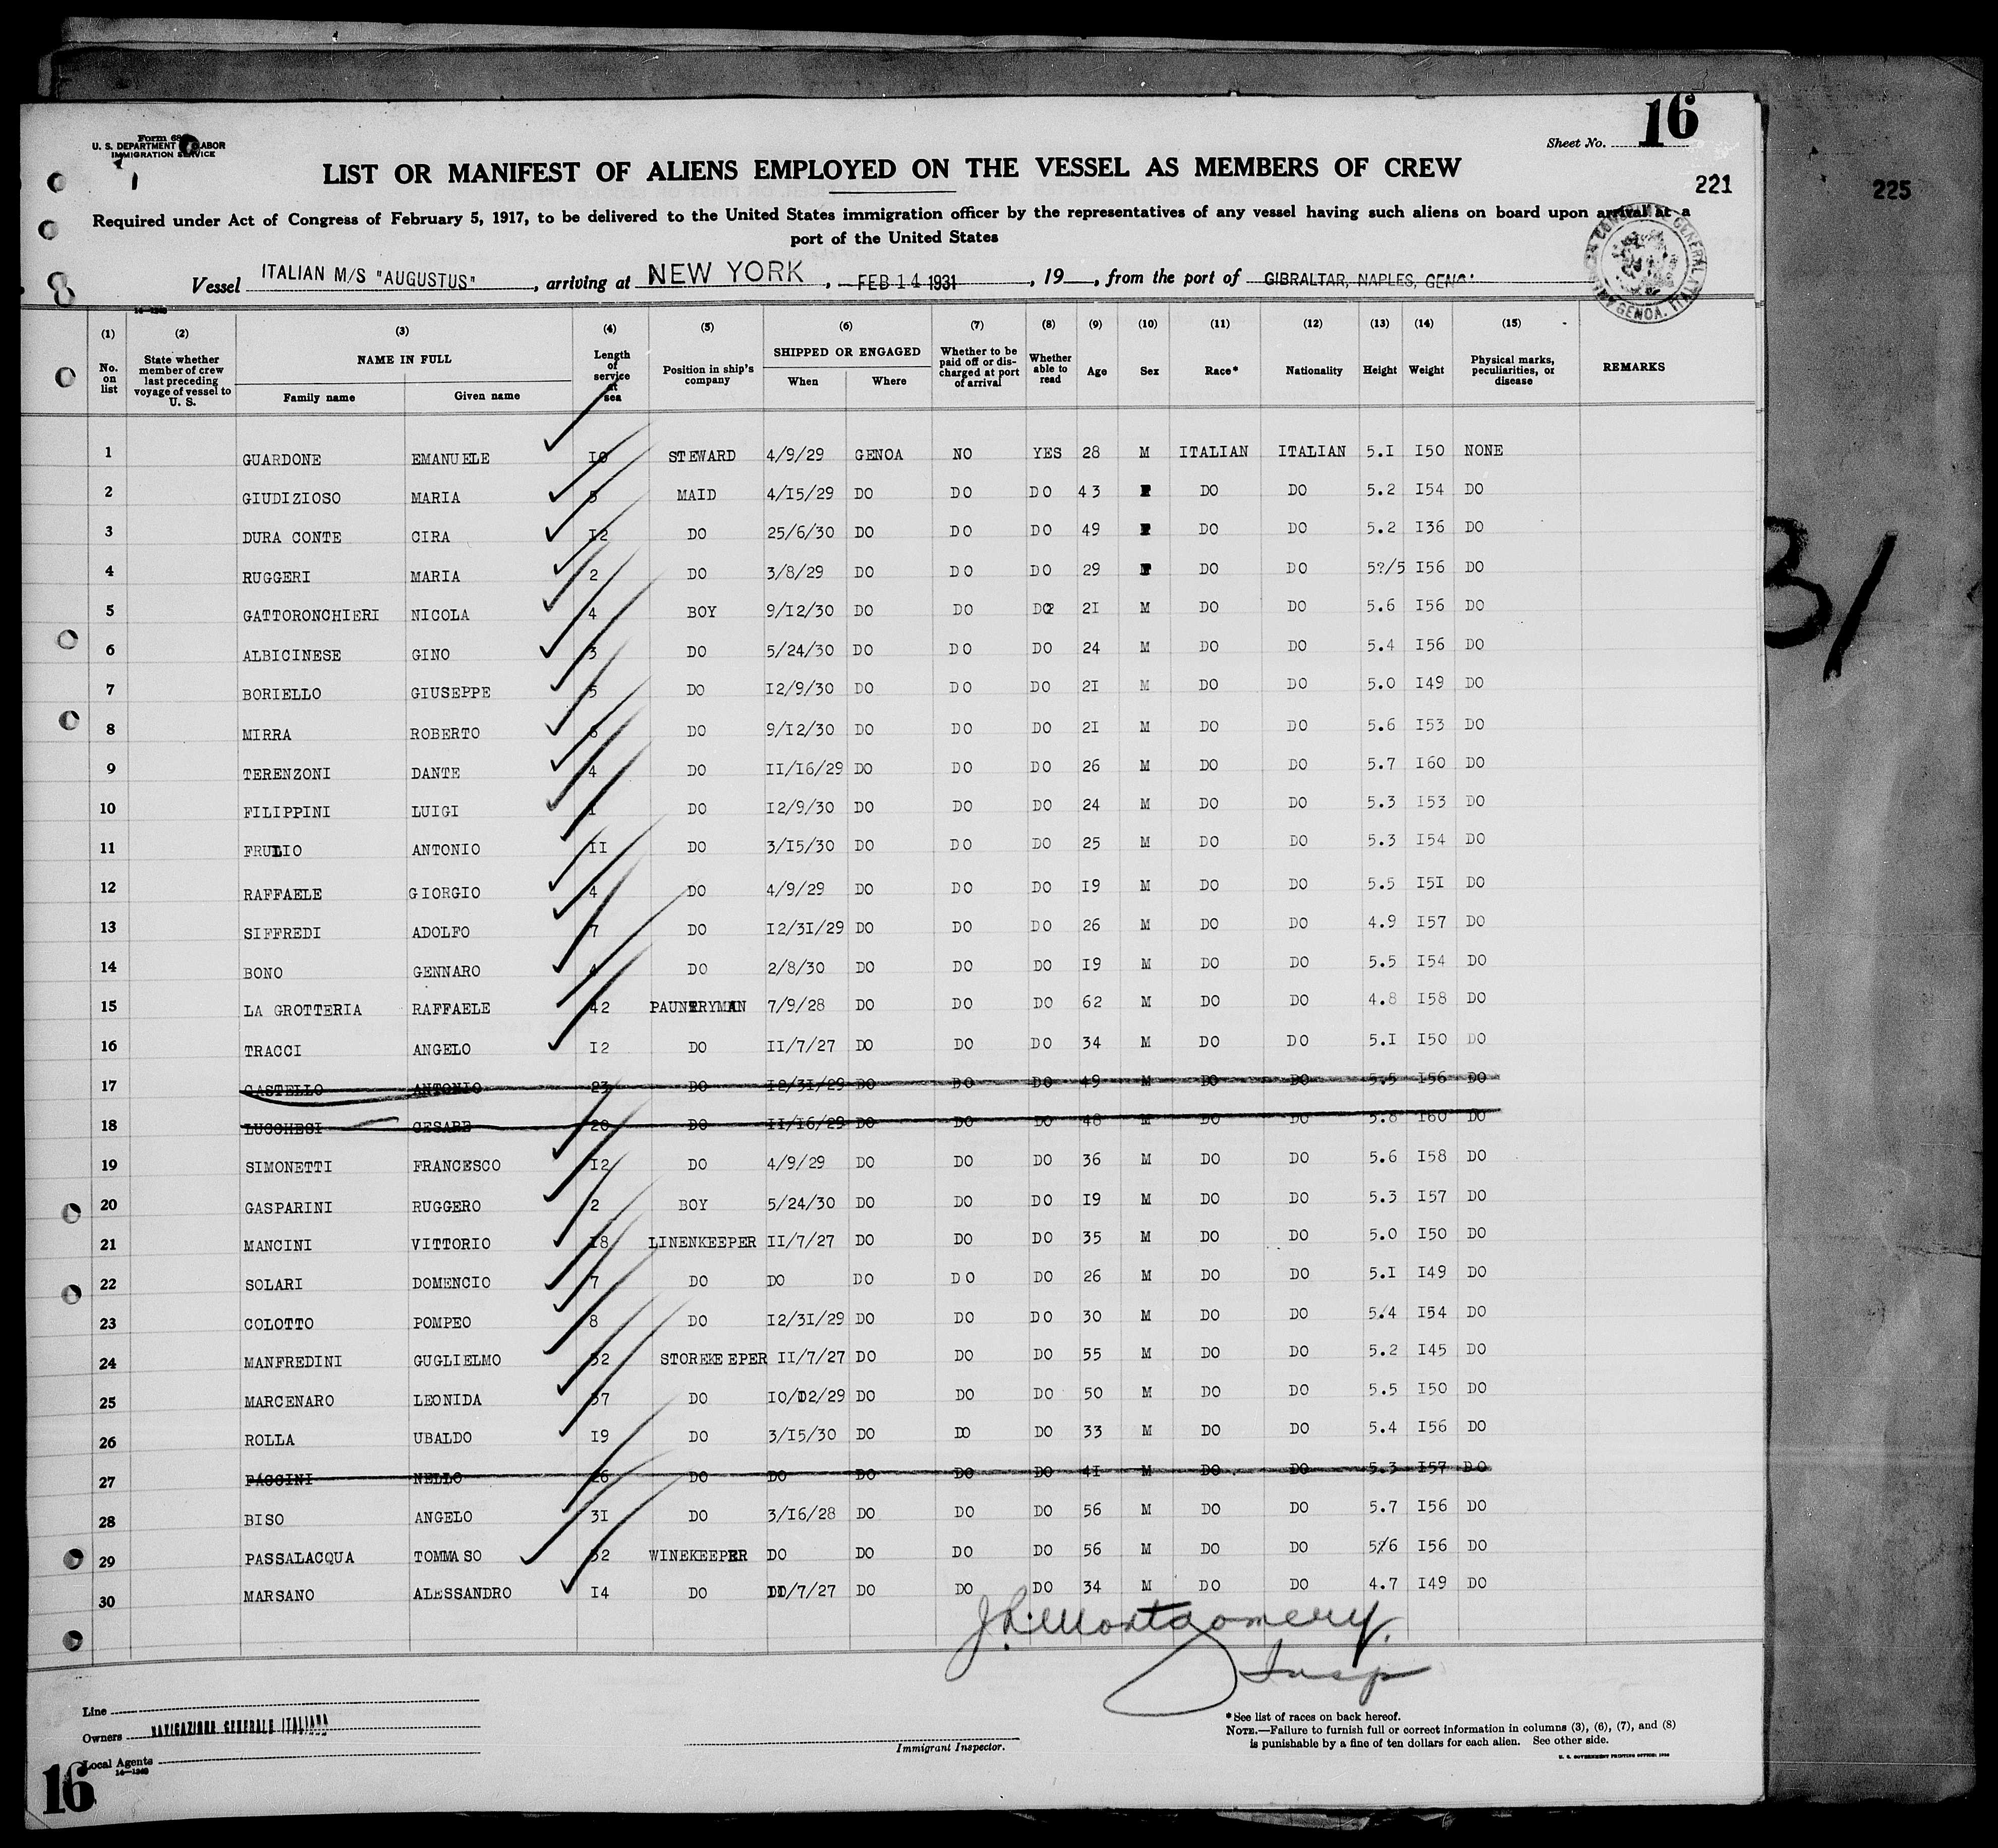 Form 68
U. S. DEPARTMENT LABOR
IMMIGRATION SERVICE
Sheet No. 16
LIST OR MANIFEST OF ALIENS EMPLOYED ON THE VESSEL AS MEMBERS OF CREW
221
225
Required under Act of Congress of February 5, 1917, to be delivered to the United States immigration officer by the representatives of any vessel having such aliens on board upon arrival at a
port of the United States
Vessel ITALIAN M/S "AUGUSTUS", arriving at NEW YORK, FEB 14 1931, 19__, from the port of GIBRALTAR, NAPLES, GENO
(1) (2) (3) (4) (5) (6) (7) (8) (9) (10) (11) (12) (13) (14) (15)
No. on list State whether member of crew last preceding voyage of vessel to U. S. NAME IN FULL Family name Given name Length of service at sea Position in ship's company SHIPPED OR ENGAGED When Where Whether to be paid off or discharged at port of arrival Whether able to read Age Sex Race* Nationality Height Weight Physical marks, peculiarities, or disease REMARKS
1 GUARDONE EMANUELE 10 STEWARD 4/9/29 GENOA NO YES 28 M ITALIAN ITALIAN 5.I I50 NONE
2 GIUDIZIOSO MARIA 5 MAID 4/I5/29 DO DO DO 43 F DO DO 5.2 I54 DO
3 DURA CONTE CIRA I2 DO 25/6/30 DO DO DO 49 F DO DO 5.2 I36 DO
4 RUGGERI MARIA 2 DO 3/8/29 DO DO DO 29 F DO DO 5?/5 I56 DO
5 GATTORONCHIERI NICOLA 4 BOY 9/I2/30 DO DO DO 2I M DO DO 5.6 I56 DO
6 ALBICINESE GINO 3 DO 5/24/30 DO DO DO 24 M DO DO 5.4 I56 DO
7 BORIELLO GIUSEPPE 5 DO I2/9/30 DO DO DO 2I M DO DO 5.0 I49 DO
8 MIRRA ROBERTO 6 DO 9/I2/30 DO DO DO 2I M DO DO 5.6 I53 DO
9 TERENZONI DANTE 4 DO II/I6/29 DO DO DO 26 M DO DO 5.7 I60 DO
10 FILIPPINI LUIGI I DO I2/9/30 DO DO DO 24 M DO DO 5.3 I53 DO
11 FRULIO ANTONIO II DO 3/I5/30 DO DO DO 25 M DO DO 5.3 I54 DO
12 RAFFAELE GIORGIO 4 DO 4/9/29 DO DO DO I9 M DO DO 5.5 I5I DO
13 SIFFREDI ADOLFO 7 DO I2/3I/29 DO DO DO 26 M DO DO 4.9 I57 DO
14 BONO GENNARO 4 DO 2/8/30 DO DO DO I9 M DO DO 5.5 I54 DO
15 LA GROTTERIA RAFFAELE 42 PAUNTRYMAN 7/9/28 DO DO DO 62 M DO DO 4.8 I58 DO
16 TRACCI ANGELO I2 DO II/7/27 DO DO DO 34 M DO DO 5.I I50 DO
17 CASTELLO ANTONIO 23 DO I2/3I/29 DO DO DO 49 M DO DO 5.5 I56 DO
18 LUCCHESI CESARE 20 DO II/I6/29 DO DO DO 48 M DO DO 5.8 I60 DO
19 SIMONETTI FRANCESCO I2 DO 4/9/29 DO DO DO 36 M DO DO 5.6 I58 DO
20 GASPARINI RUGGERO 2 BOY 5/24/30 DO DO DO I9 M DO DO 5.3 I57 DO
21 MANCINI VITTORIO I8 LINENKEEPER II/7/27 DO DO DO 35 M DO DO 5.0 I50 DO
22 SOLARI DOMENCIO 7 DO DO DO DO DO 26 M DO DO 5.I I49 DO
23 COLOTTO POMPEO 8 DO I2/3I/29 DO DO DO 30 M DO DO 5.4 I54 DO
24 MANFREDINI GUGLIELMO 32 STOREKEEPER II/7/27 DO DO DO 55 M DO DO 5.2 I45 DO
25 MARCENARO LEONIDA 37 DO I0/D2/29 DO DO DO 50 M DO DO 5.5 I50 DO
26 ROLLA UBALDO I9 DO 3/I5/30 DO DO DO 33 M DO DO 5.4 I56 DO
27 PACCINI NELLO 26 DO DO DO DO DO 4I M DO DO 5.3 I57 DO
28 BISO ANGELO 3I DO 3/I6/28 DO DO DO 56 M DO DO 5.7 I56 DO
29 PASSALACQUA TOMMASO 32 WINEKEEPER DO DO DO DO 56 M DO DO 5/6 I56 DO
30 MARSANO ALESSANDRO I4 DO II/7/27 DO DO DO 34 M DO DO 4.7 I49 DO
J.R. Montgomery
Insp
Line
Owners NAVIGAZIONE GENERALE ITALIANA
Local Agents
14—1240
Immigrant Inspector.
*See list of races on back hereof.
NOTE.—Failure to furnish full or correct information in columns (3), (6), (7), and (8)
is punishable by a fine of ten dollars for each alien. See other side.
U. S. GOVERNMENT PRINTING OFFICE: 1930
16
31